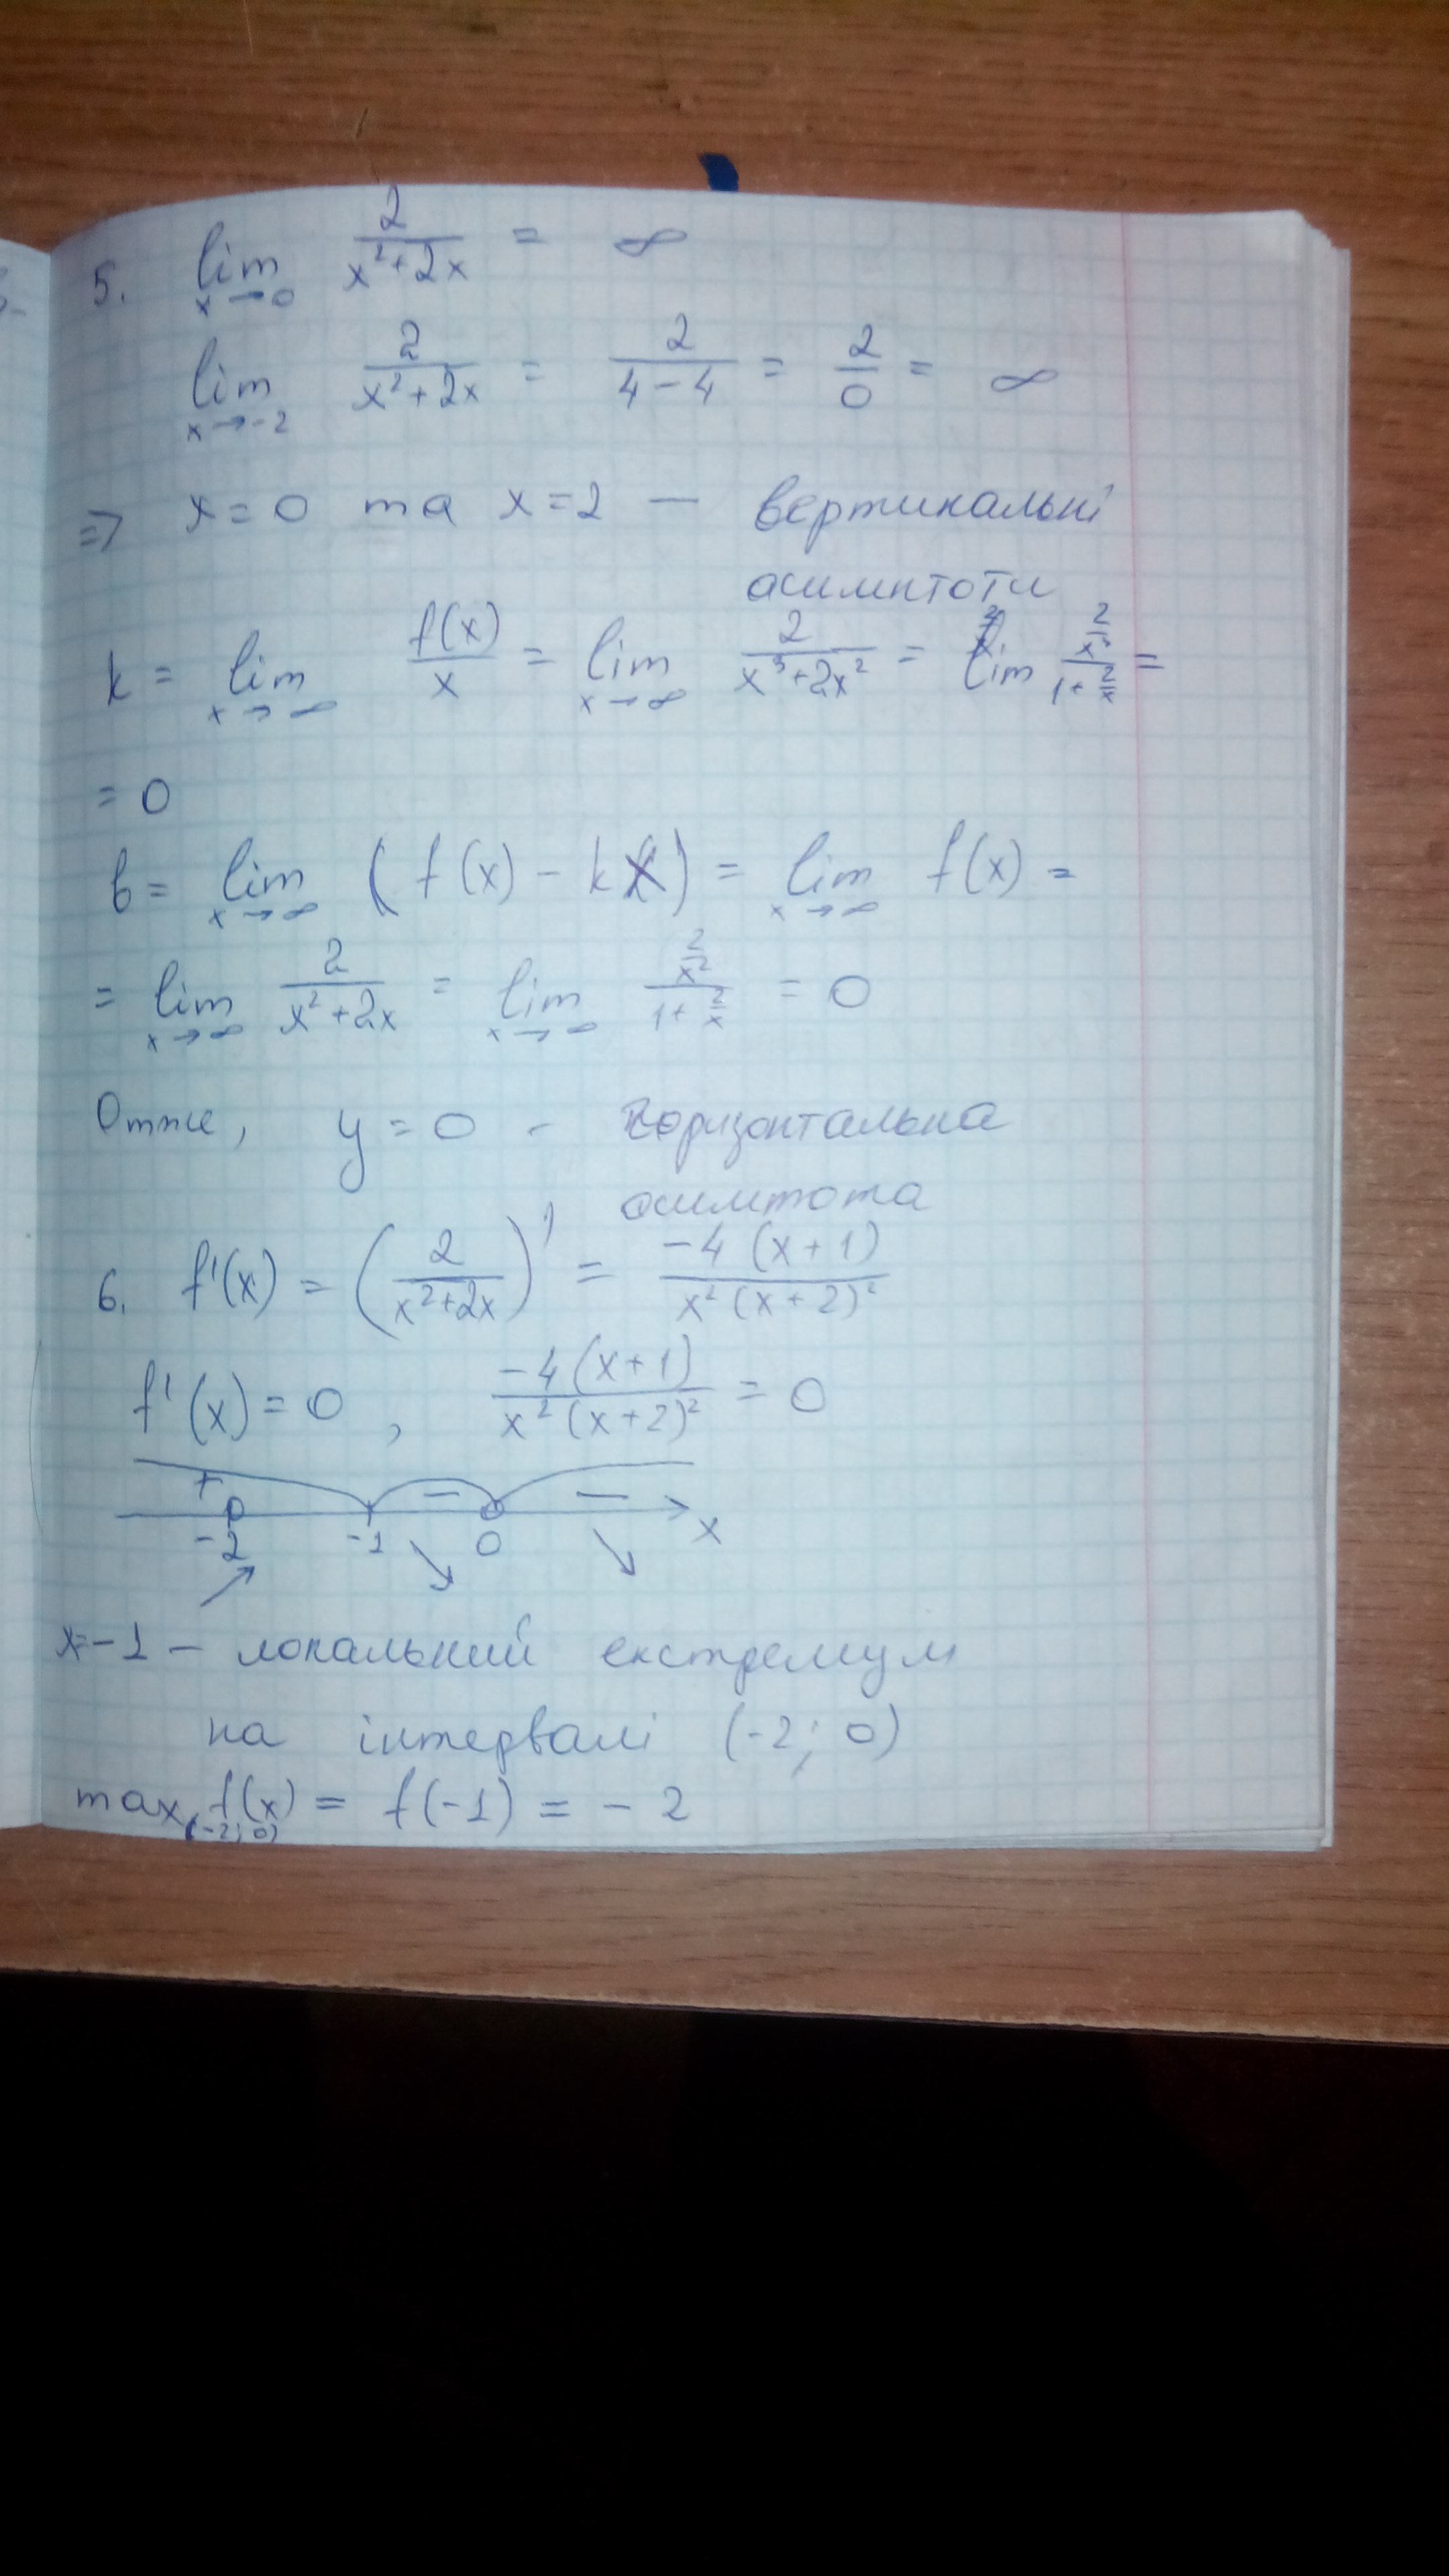 5. lim x→0 2/(x²+2x) = ∞
lim x→-2 2/(x²+2x) = 2/(4-4) = 2/0 = ∞
=> x=0 та x=2 — вертикальні
асимптоти
k = lim x→∞ f(x)/x = lim x→∞ 2/(x³+2x²) = lim (2/x³)/(1+2/x) =
= 0
b = lim x→∞ (f(x) - kx) = lim x→∞ f(x) =
= lim x→∞ 2/(x²+2x) = lim x→∞ (2/x²)/(1+2/x) = 0
Отже, y = 0 - горизонтальна
асимтота
6. f'(x) = (2/(x²+2x))' = -4(x+1)/(x²(x+2)²)
f'(x) = 0, -4(x+1)/(x²(x+2)²) = 0
+ — —
-2 -1 0 x
x=-1 — локальний екстремум
на інтервалі (-2; 0)
max(-2;0) f(x) = f(-1) = -2